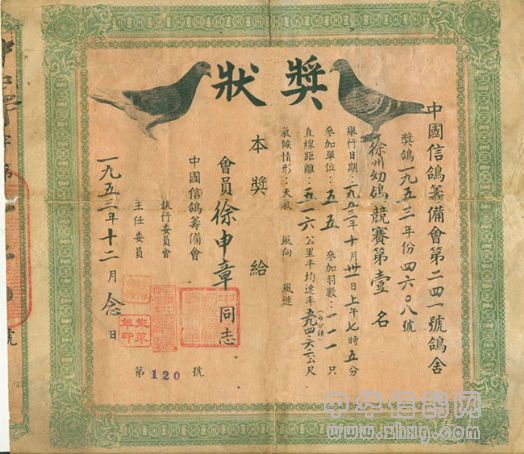 獎狀
中國信鴿籌備會第二四一號鴿舍
獎鴿一九五三年份四六〇八號
徐州幼鴿競賽第壹名
舉行日期：一九五三年十月卅一日上午七時五分
參加單位：五五 參加羽數：一一一只
直線距離：五一六公里平均速率 公尺
氣候情形：天氣 風向 風速
本獎給
會員徐申章同志
中國信鴿籌備會
執行委員會
主任委員
一九五三年十二月念日
第120號
號
中华信鸽网